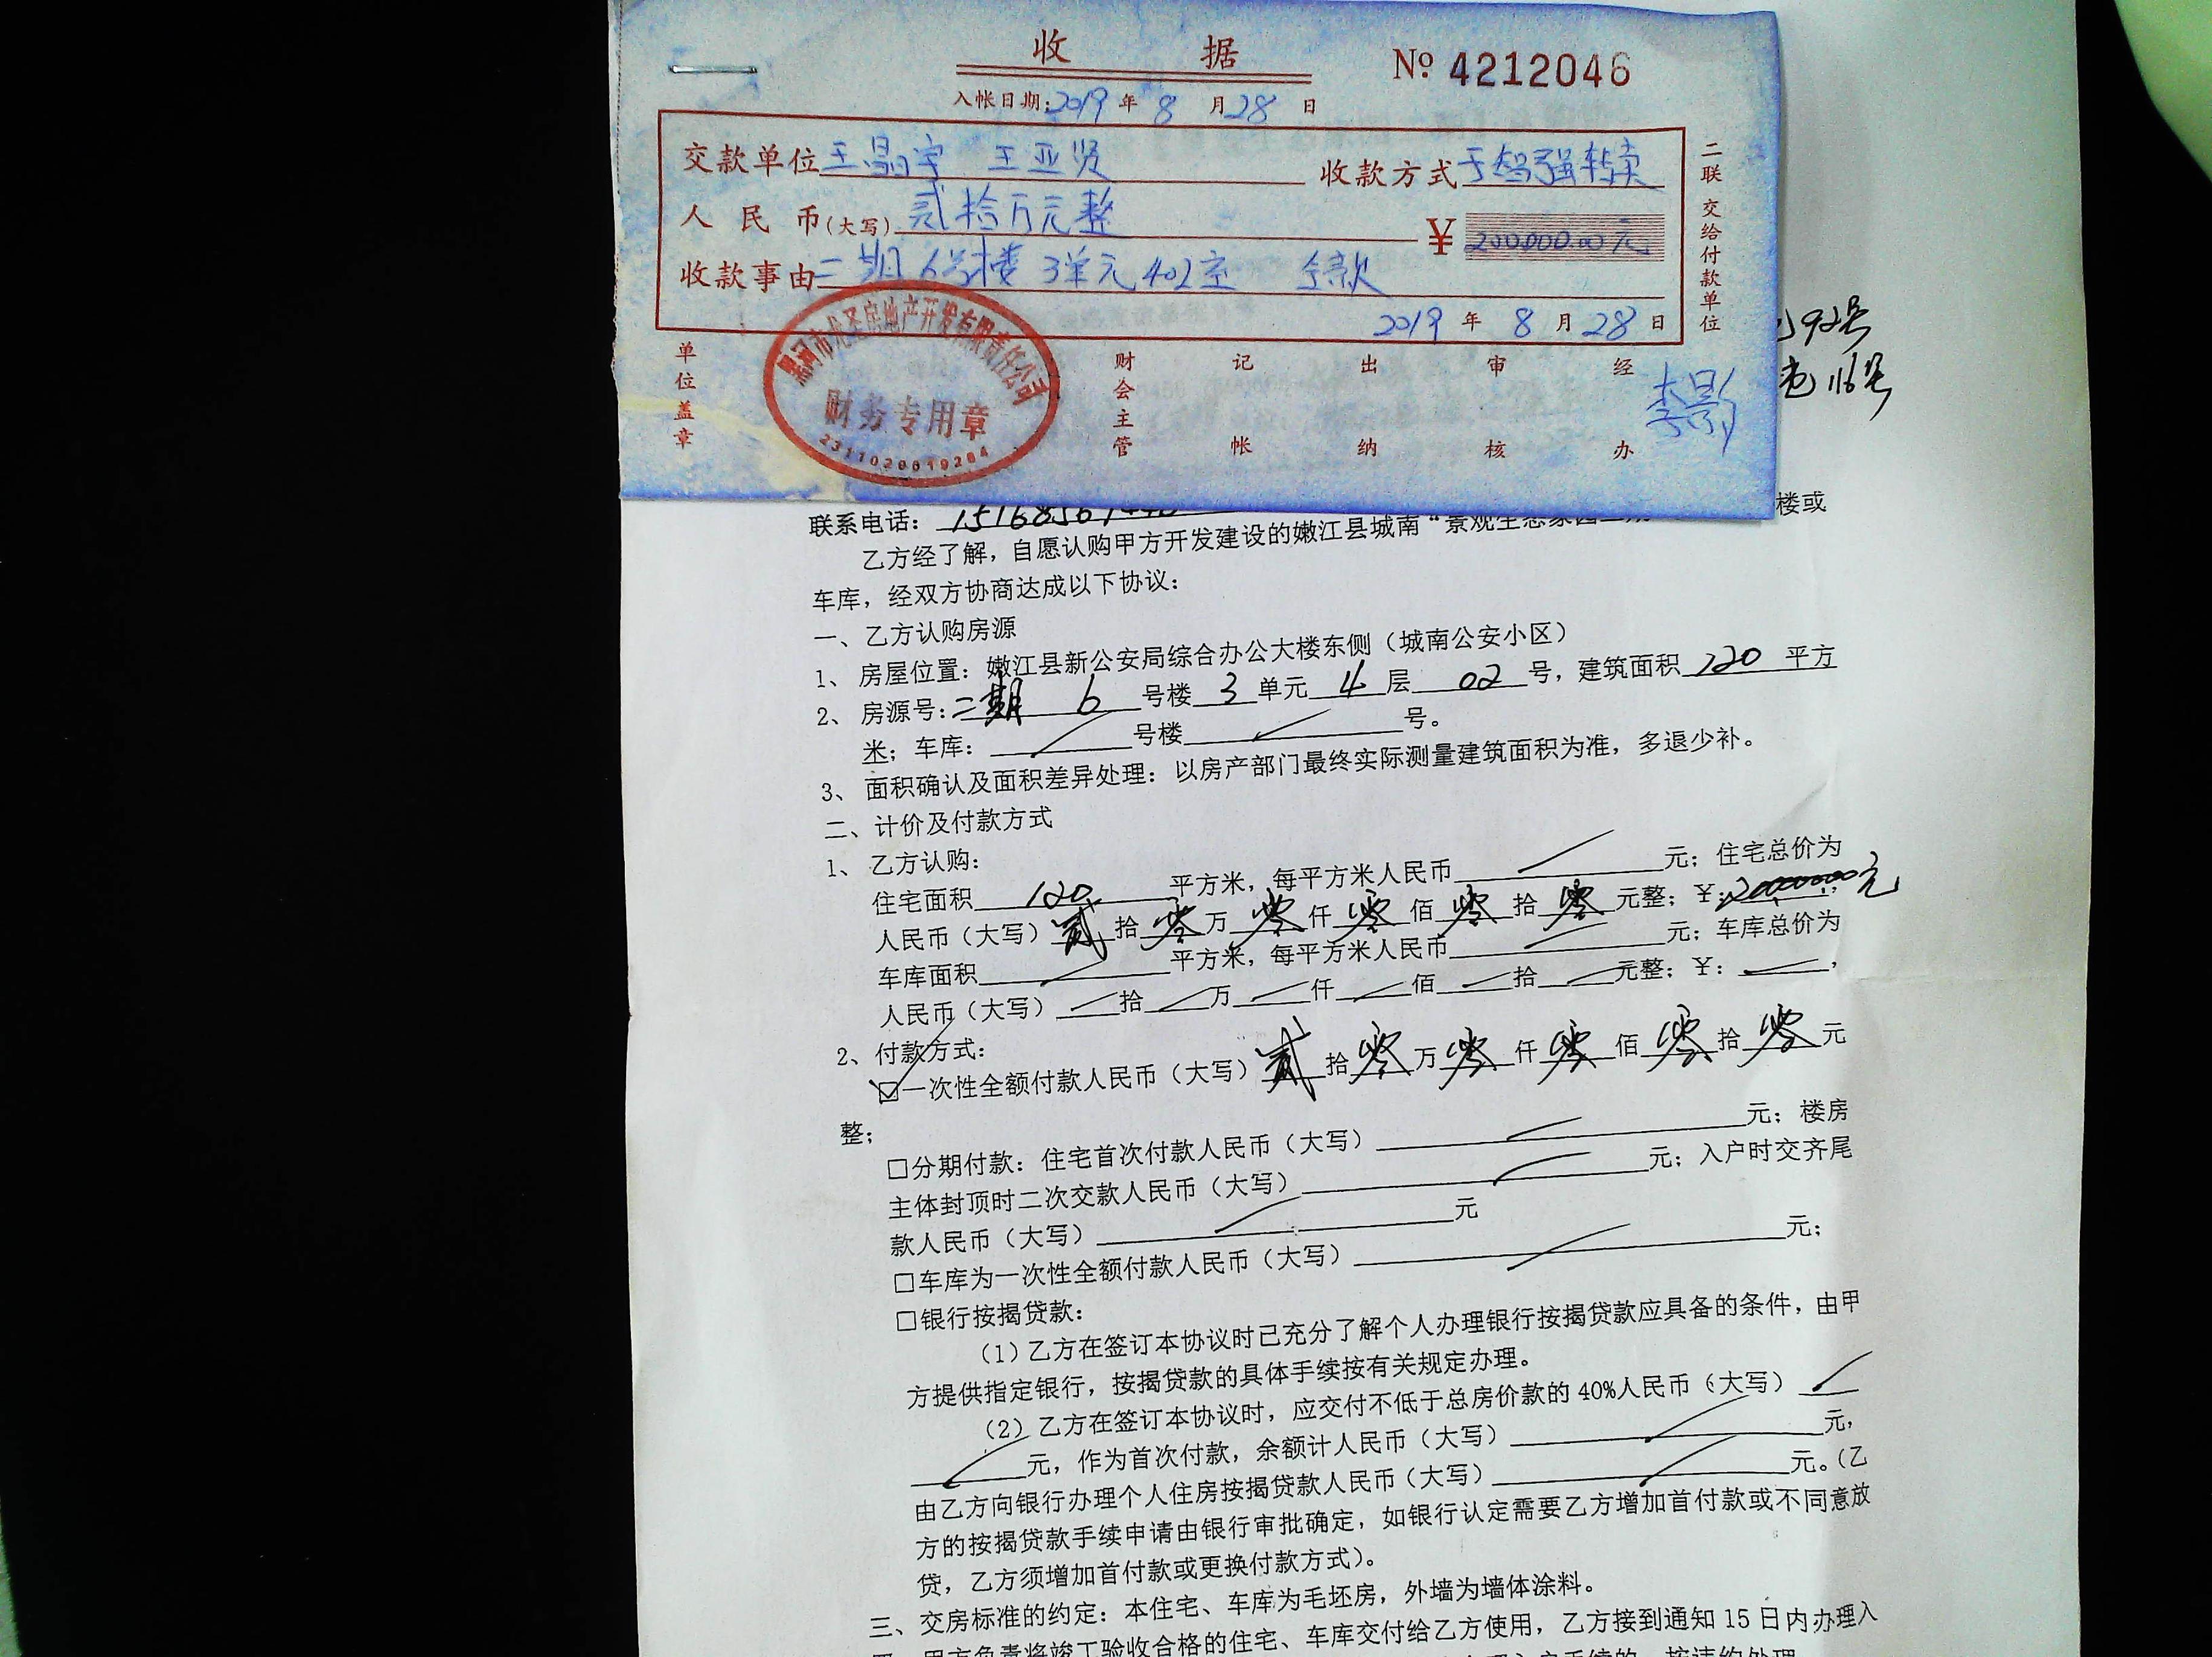 收 据 № 4212046
入帐日期:2019 年 8 月 28 日
交款单位 王晶宇 王亚贤 收款方式 于智强转卖
人民币(大写) 贰拾万元整 ¥ 200000.00元
收款事由 二期6号楼3单元402室 全款
2019 年 8 月 28 日
二联 交给付款单位
单位盖章 财会主管 记帐 出纳 审核 经办 李影
黑河市龙圣房地产开发有限责任公司
财务专用章
2311020019204
92号
116号
联系电话:
乙方经了解，自愿认购甲方开发建设的嫩江县城南“景观生态家园 楼或
车库，经双方协商达成以下协议：
一、乙方认购房源
1、房屋位置：嫩江县新公安局综合办公大楼东侧（城南公安小区）
2、房源号:二期 6 号楼 3 单元 4 层 02 号，建筑面积 120 平方
米；车库： 号楼 号。
3、面积确认及面积差异处理：以房产部门最终实际测量建筑面积为准，多退少补。
二、计价及付款方式
1、乙方认购：
住宅面积 120 平方米，每平方米人民币 元；住宅总价为
人民币（大写）贰 拾 零 万 零 仟 零 佰 零 拾 零 元整；¥: 元
车库面积 平方米，每平方米人民币 元；车库总价为
人民币（大写） 拾 万 仟 佰 拾 元整；¥: ，
2、付款方式：
☑一次性全额付款人民币（大写） 贰 拾 零 万 零 仟 零 佰 零 拾 零 元
整；
□分期付款：住宅首次付款人民币（大写） 元；楼房
主体封顶时二次交款人民币（大写） 元；入户时交齐尾
款人民币（大写） 元
□车库为一次性全额付款人民币（大写） 元；
□银行按揭贷款：
（1）乙方在签订本协议时已充分了解个人办理银行按揭贷款应具备的条件，由甲
方提供指定银行，按揭贷款的具体手续按有关规定办理。
（2）乙方在签订本协议时，应交付不低于总房价款的 40%人民币（大写）
元，作为首次付款，余额计人民币（大写） 元，
由乙方向银行办理个人住房按揭贷款人民币（大写） 元。（乙
方的按揭贷款手续申请由银行审批确定，如银行认定需要乙方增加首付款或不同意放
贷，乙方须增加首付款或更换付款方式）。
三、交房标准的约定：本住宅、车库为毛坯房，外墙为墙体涂料。
四、甲方负责将竣工验收合格的住宅、车库交付给乙方使用，乙方接到通知 15 日内办理入